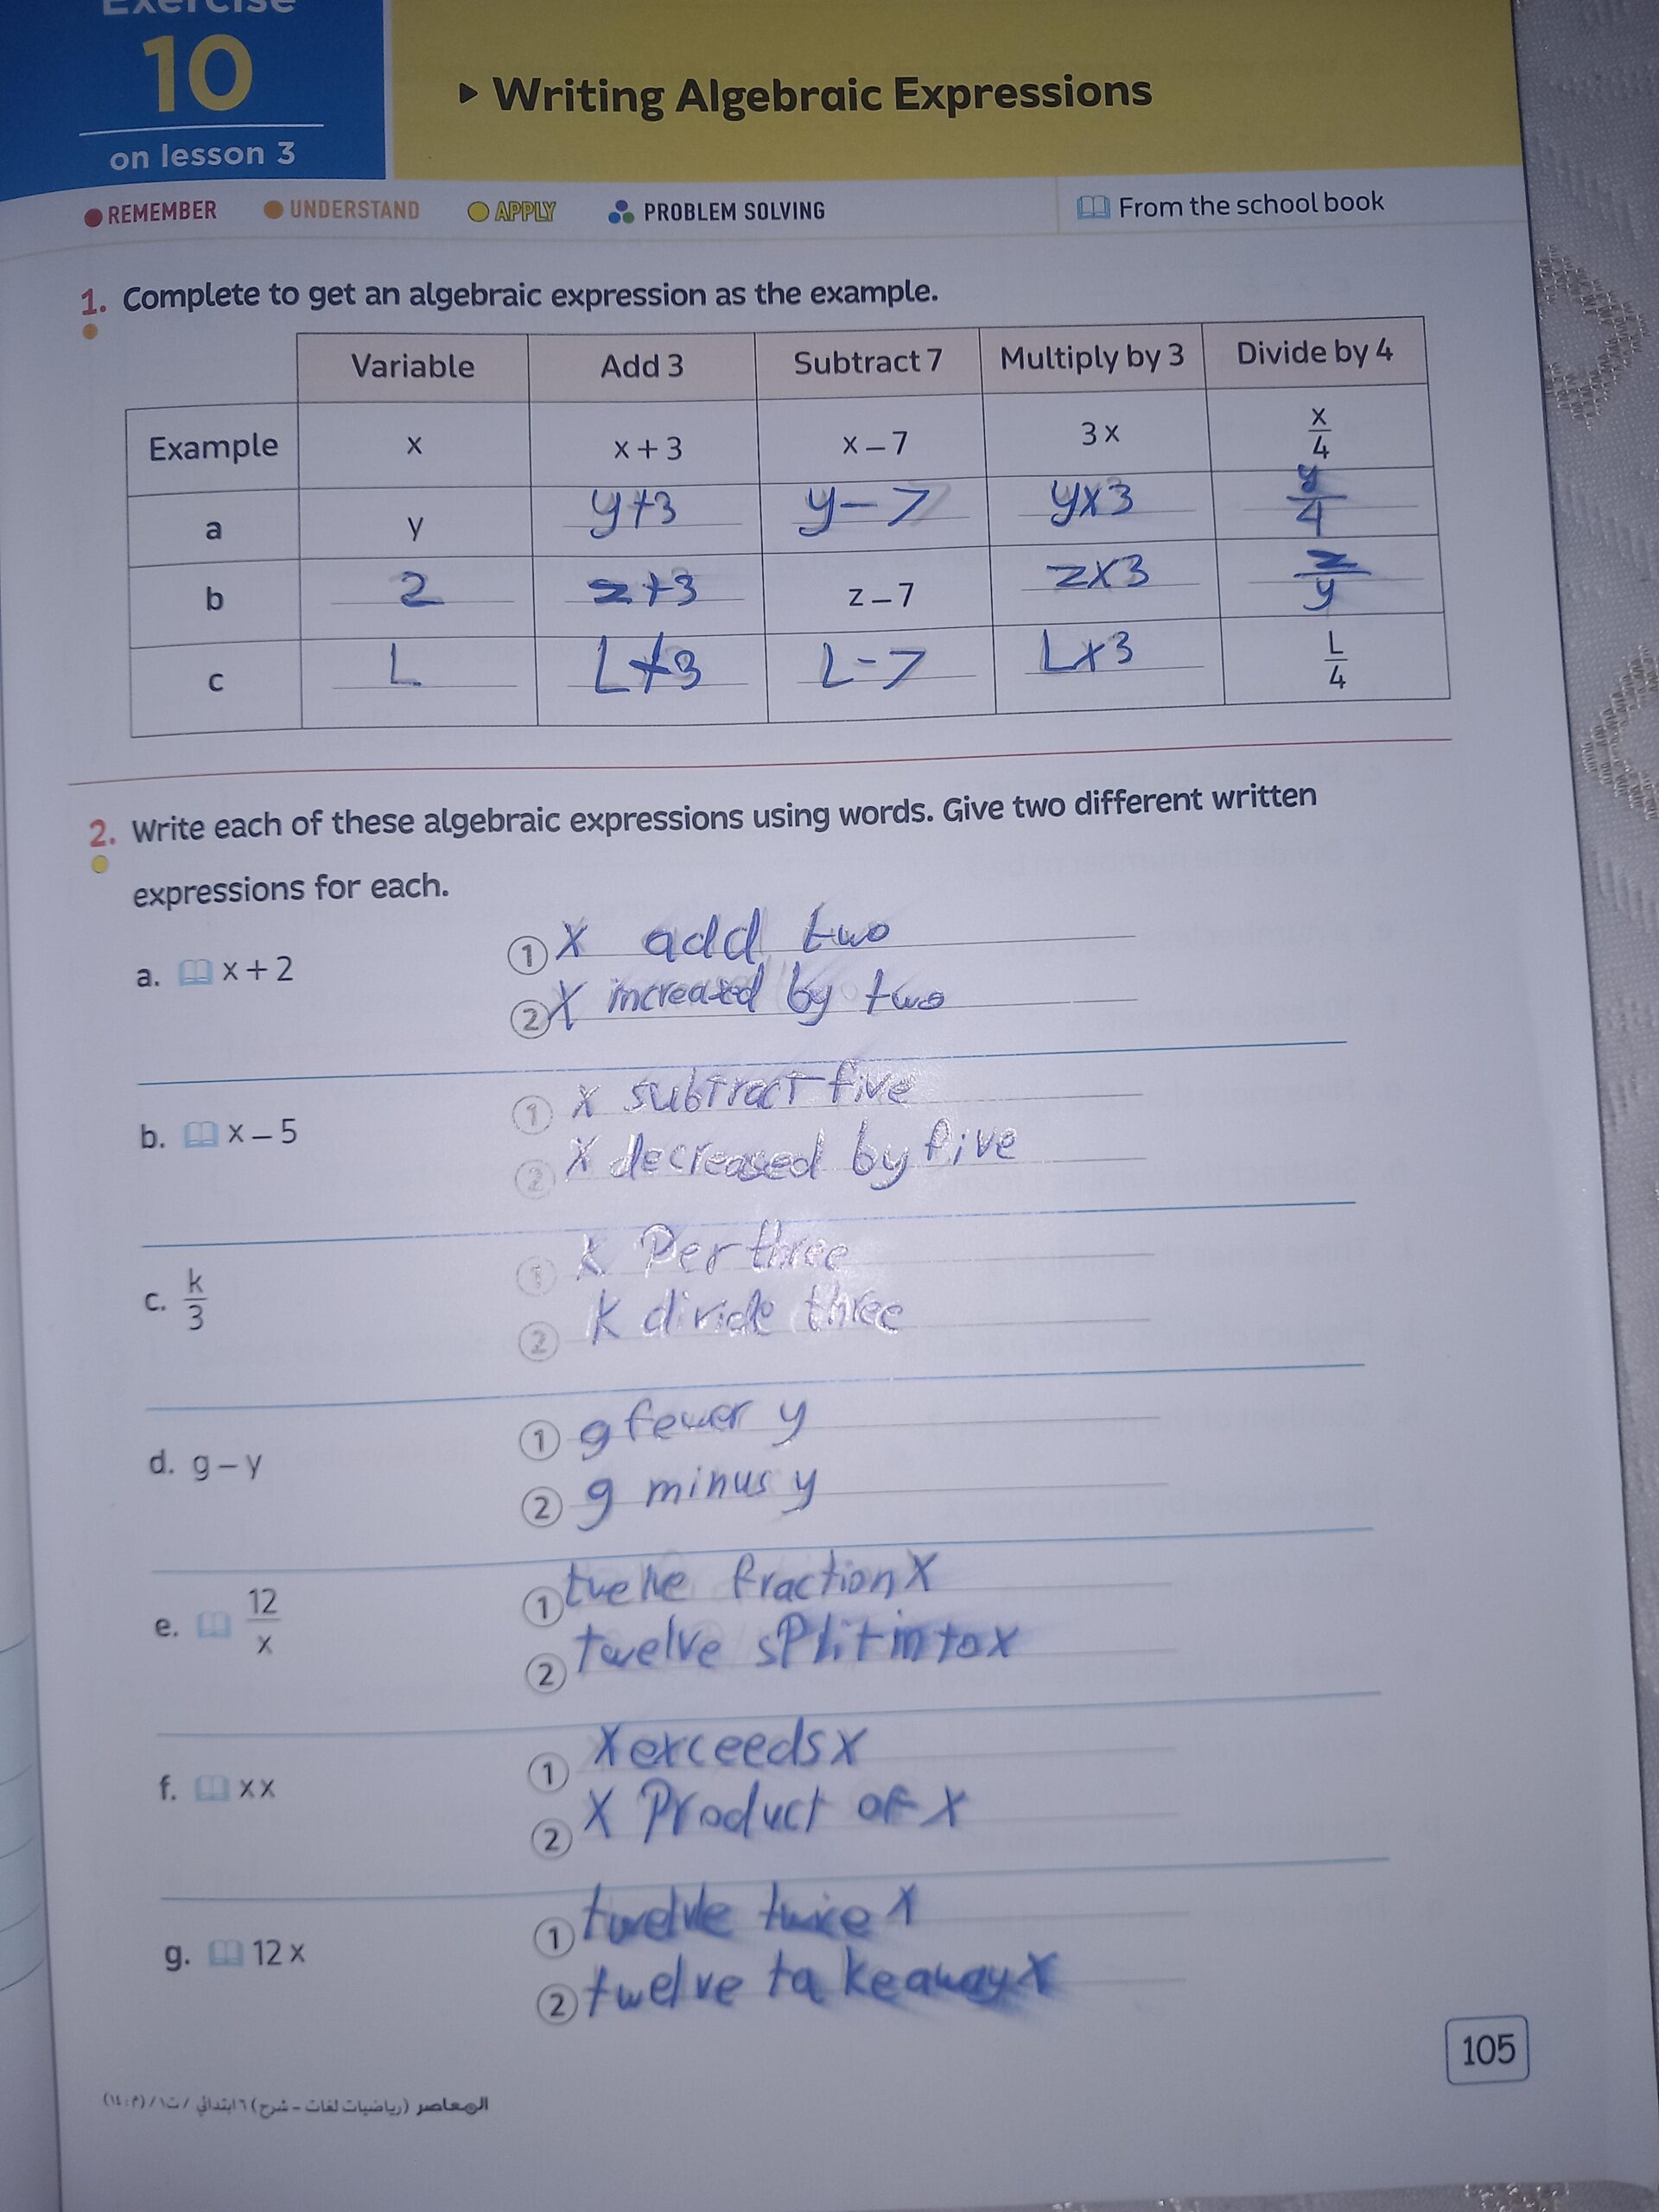 Exercise
10
on lesson 3
▶ Writing Algebraic Expressions
REMEMBER UNDERSTAND APPLY PROBLEM SOLVING From the school book
1. Complete to get an algebraic expression as the example.
Variable Add 3 Subtract 7 Multiply by 3 Divide by 4
Example x x + 3 x – 7 3 x x/4
a y y+3 y-7 yx3 y/4
b 2 z+3 z – 7 zx3 z/y
c L L+3 L-7 Lx3 L/4
2. Write each of these algebraic expressions using words. Give two different written
expressions for each.
a. x + 2
① X add two
② X increased by two
b. x – 5
① X subtract five
② X decreased by five
c. k/3
① K Per three
② K divide three
d. g – y
① g fewer y
② g minus y
e. 12/x
① twelve fraction X
② twelve split into x
f. x x
① X exceeds x
② X Product of X
g. 12 x
① twelve twice X
② twelve take away X
105
المعاصر (رياضيات لغات - شرح) ٦ ابتدائي / ت١ / (م: ١٤)